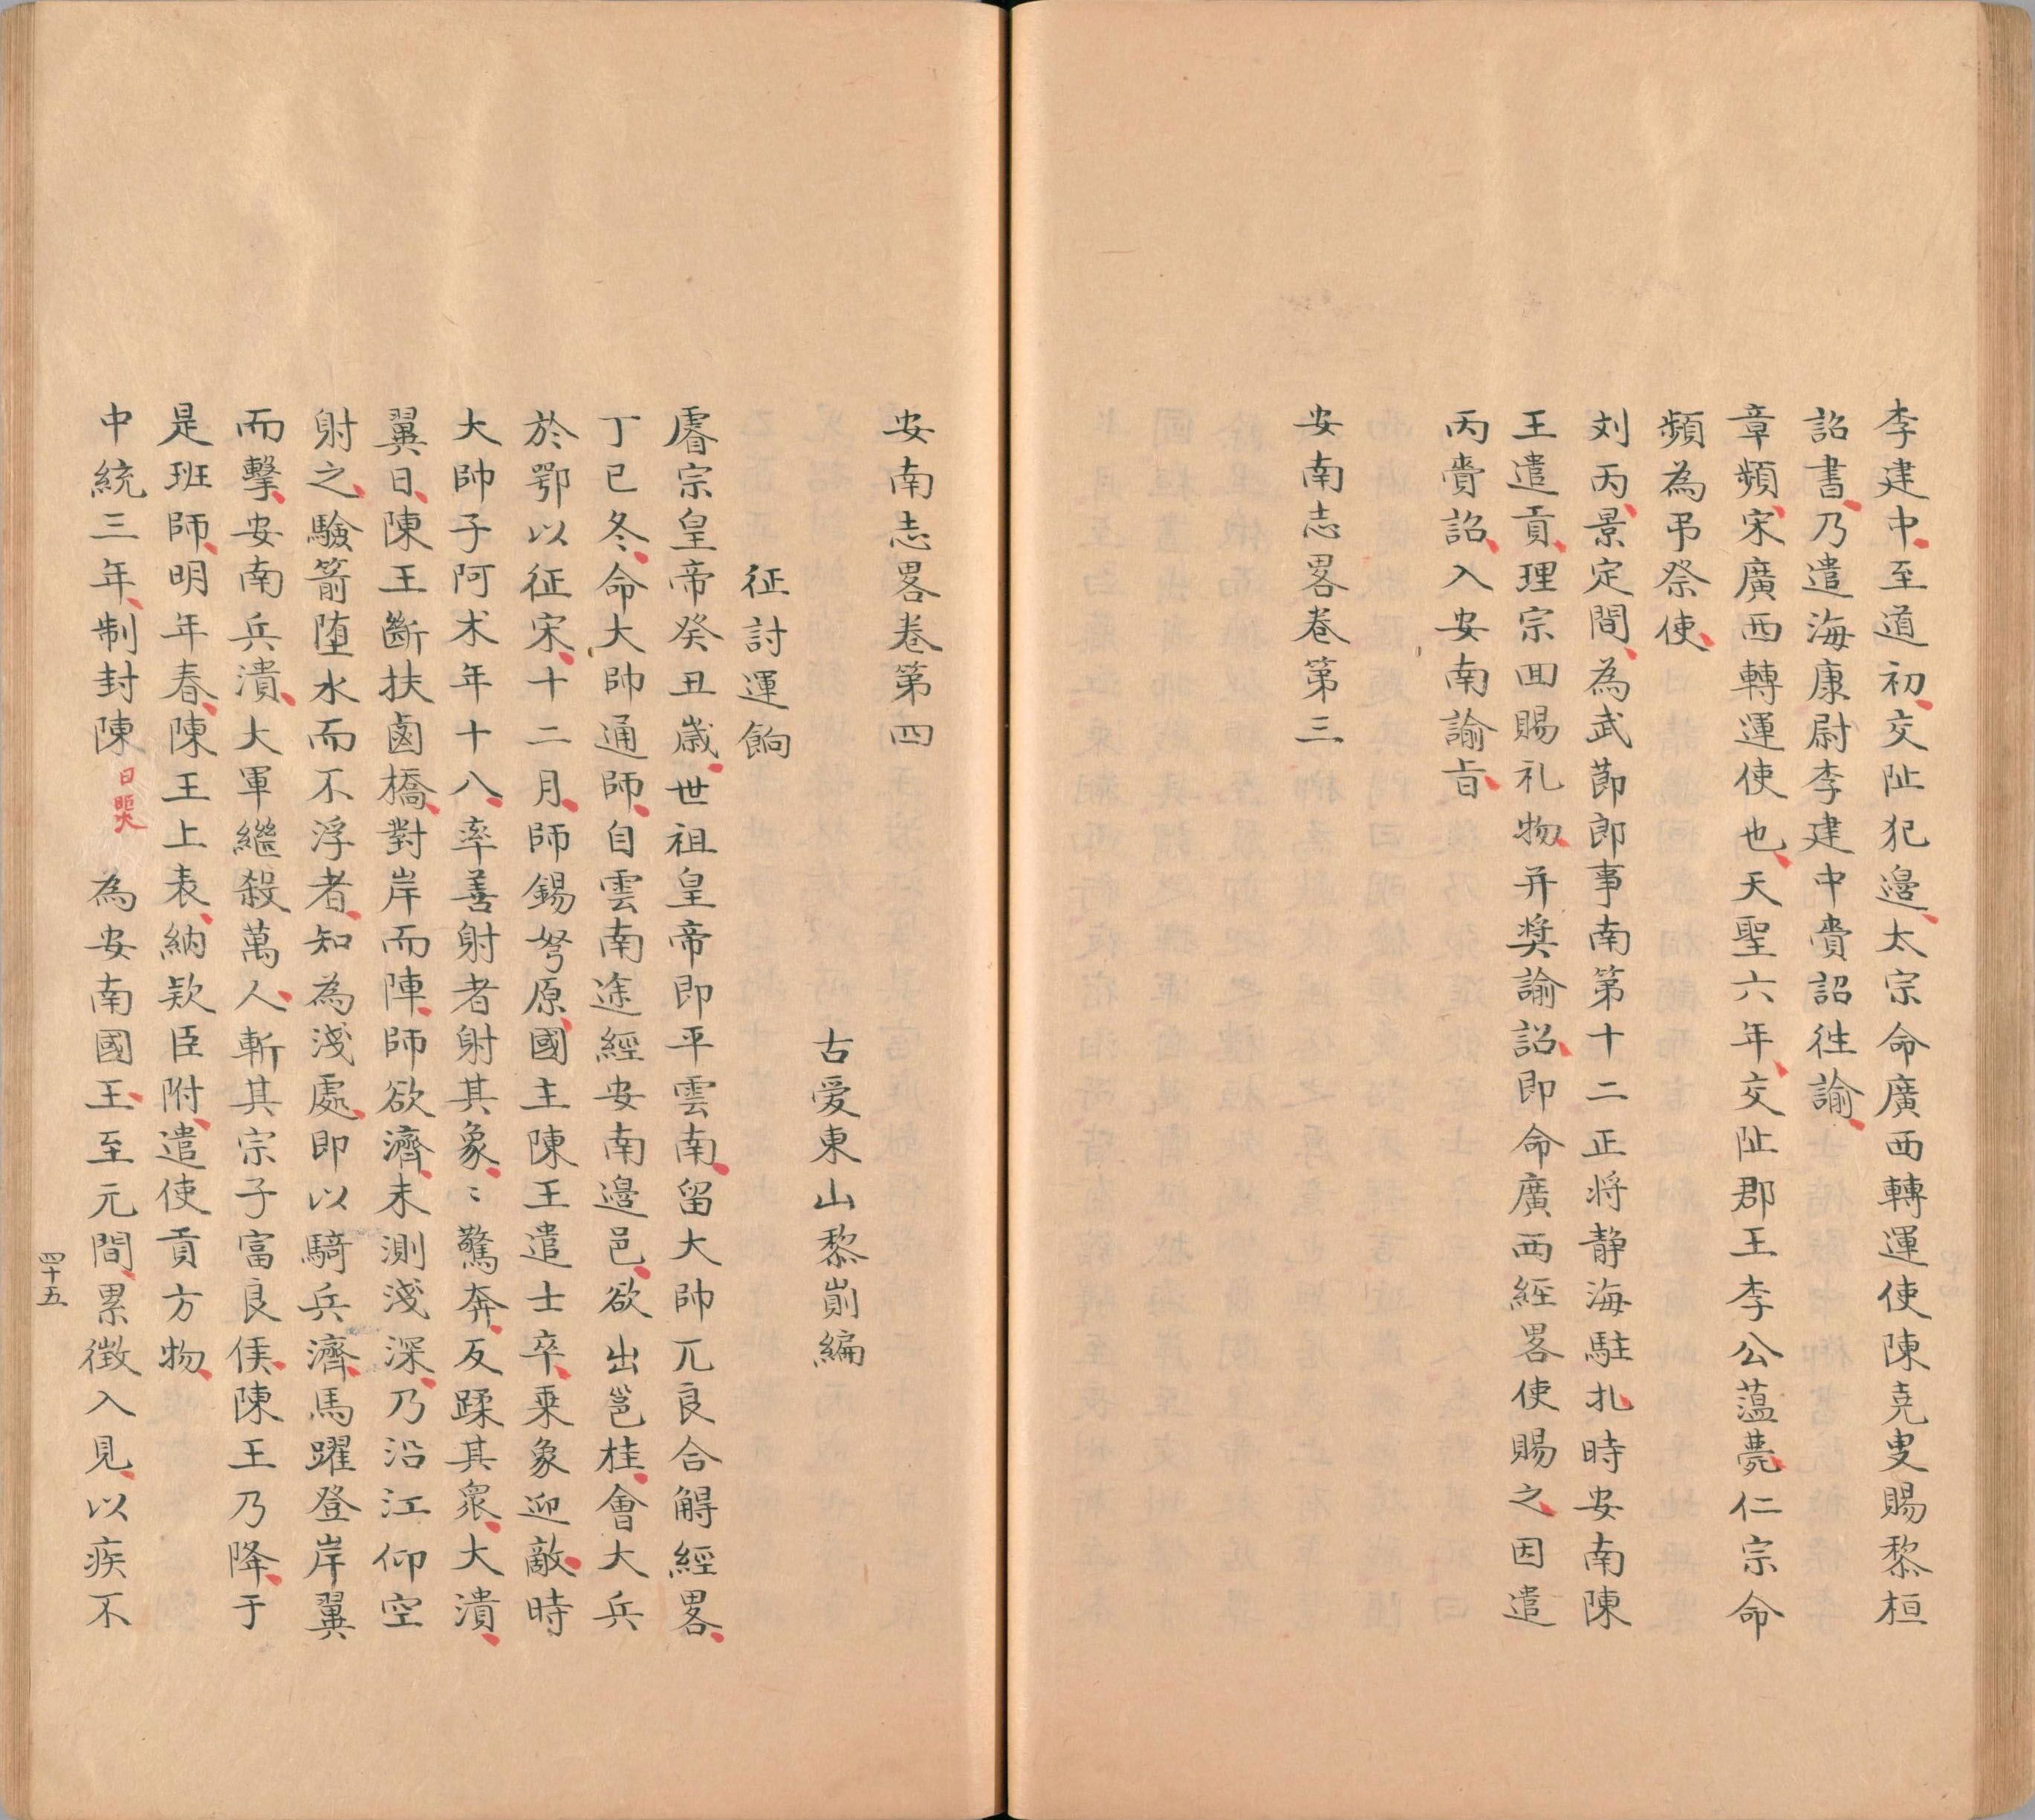 李建中至道初交阯犯邊太宗命廣西轉運使陳堯叟賜黎桓
詔書乃遣海康尉李建中賫詔往諭
章頻宋廣西轉運使也天聖六年交阯郡王李公蘊薨仁宗命
頻為弔祭使
刘丙景定間為武莭郎事南第十二正将静海駐扎時安南陳
王遣貢理宗囬賜礼物并奨諭詔即命廣西經畧使賜之因遣
丙賫詔入安南諭㫖
安南志畧卷第三
安南志畧卷第四
古爱東山黎崱編
征討運餉
睿宗皇帝癸丑嵗世祖皇帝即平雲南留大帥兀良合觧經畧
丁巳冬命大帥通師自雲南途經安南邉邑欲出邕桂會大兵
於鄂以征宋十二月師錫弩原國主陳王遣士卒乗象迎敵時
大帥子阿术年十八率善射者射其象〻驚奔反蹂其衆大潰
翼日陳王斷扶鹵橋對岸而陣師欲濟未測淺深乃沿江仰空
射之驗箭堕水而不浮者知為淺處即以騎兵濟馬躍登岸翼
而擊安南兵潰大軍繼殺萬人斬其宗子富良侯陳王乃降于
是班師明年春陳王上表納欵臣附遣使貢方物
中統三年制封陳日煚為安南國王至元間累徴入見以疾不
四十五